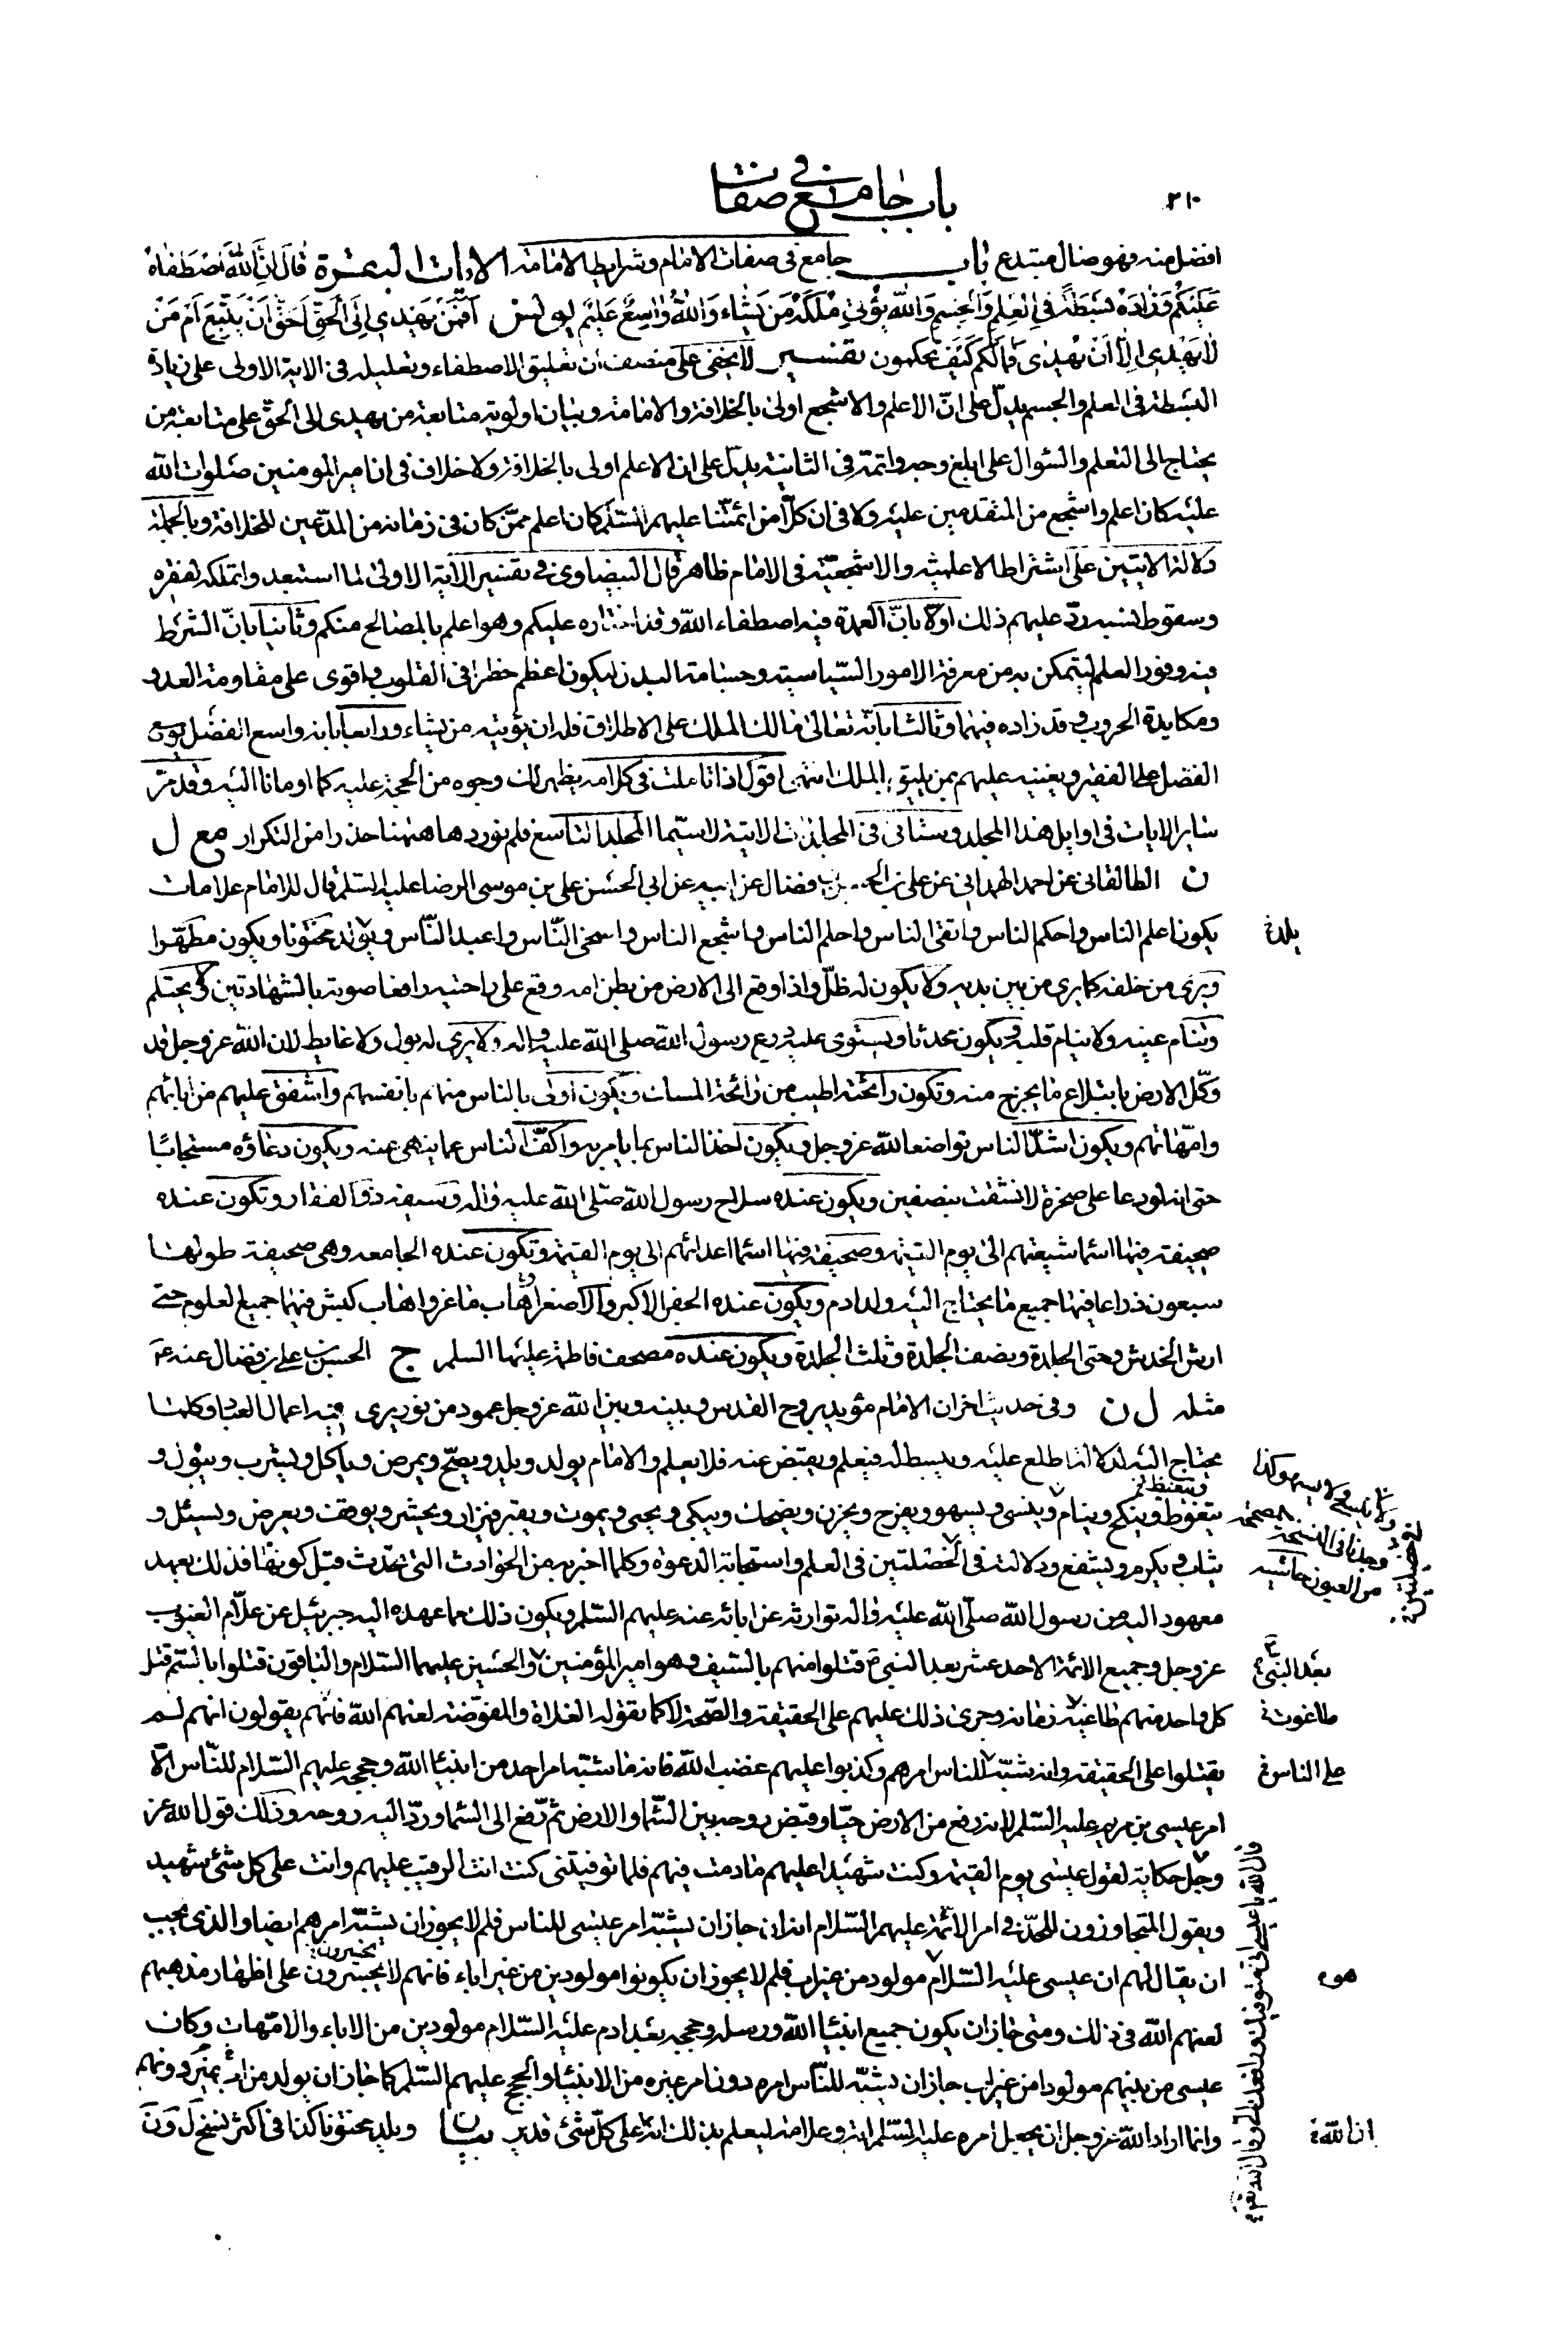 باب جامع في صفات
٢١٠
افضل منه فهو ضال مبتدع باب جامع في صفات الامام وشرايط الامامة الايات البقرة قال ان الله اصطفاه
عليكم وزاده بسطة في العلم والجسم والله يؤتي ملكه من يشاء والله واسع عليم يونس افمن يهدي الى الحق احق ان يتبع ام من
لا يهدي الا ان يهدى فما لكم كيف تحكمون تفسير لا يخفى على منصف ان تعليق الاصطفاء وتعليله في الاية الاولى على زيادة
البسطة في العلم والجسم يدل على ان الاعلم والاشجع اولى بالخلافة والامامة وبيان اولوية متابعة من يهدى الى الحق على متابعة من
يحتاج الى التعلم والسؤال على ابلغ وجه واتمه في الثانية يدل على ان الاعلم اولى بالخلافة ولا خلاف في ان امير المومنين صلوات الله
عليه كان اعلم واشجع من المتقدمين عليه ولا في ان كلا من ائمتنا عليهم السلم كان اعلم ممن كان في زمانه من المدعين للخلافة وبالجملة
دلالة الايتين على اشتراط الاعلمية والاشجعية في الامام ظاهرة قال البيضاوي في تفسير الاية الاولى لما استبعدوا تملكه لفقره
وسقوط نسبه رد عليهم ذلك اولا بان العمدة فيه اصطفاء الله وقد اختاره عليكم وهو اعلم بالمصالح منكم وثانيا بان الشرط
فيه وفور العلم ليتمكن به من معرفة الامور السياسية وجسامة البدن ليكون اعظم خطرا في القلوب واقوى على مقاومة العدو
ومكايدة الحروب وقد زاده فيهما وثالثا بانه تعالى مالك الملك على الاطلاق فله ان يؤتيه من يشاء ورابعا بانه واسع الفضل يوسع
الفضل على الفقير ويغنيه عليهم بمن يليق بالملك انتهى اقول اذا تاملت في كلامه يظهر لك وجوه من الحجة عليه كما اومانا اليه وقد مر
ساير الايات في اوايل هذا المجلد وستاتي في المجلدات الاتية لا سيما المجلد التاسع فلم نوردها ههنا حذرا من التكرار مع ل
ن الطالقاني عن احمد الهمداني عن علي بن الحسن بن فضال عن ابيه عن ابي الحسن علي بن موسى الرضا عليه السلم قال للامام علامات
يكون اعلم الناس واحكم الناس واتقى الناس واحلم الناس واشجع الناس واسخى الناس واعبد الناس ويولد مختونا ويكون مطهرا
يلد خ
ويرى من خلفه كما يرى من بين يديه ولا يكون له ظل واذا وقع الى الارض من بطن امه وقع على راحتيه رافعا صوته بالشهادتين ولا يحتلم
وتنام عينه ولا ينام قلبه ويكون محدثا ويستوي عليه درع رسول الله صلى الله عليه واله ولا يرى له بول ولا غايط لان الله عز وجل قد
وكل الارض بابتلاع ما يخرج منه وتكون رائحته اطيب من رائحة المسك ويكون اولى بالناس منهم بانفسهم واشفق عليهم من ابائهم
وامهاتهم ويكون اشد الناس تواضعا لله عز وجل ويكون اخذ الناس بما يامر به واكف الناس عما ينهى عنه ويكون دعاؤه مستجابا
حتى انه لو دعا على صخرة لانشقت بنصفين ويكون عنده سلاح رسول الله صلى الله عليه واله وسيفه ذو الفقار وتكون عنده
صحيفة فيها اسما شيعتهم الى يوم القيمة وصحيفة فيها اسما اعدائهم الى يوم القيمة وتكون عنده الجامعه وهي صحيفة طولها
سبعون ذراعا فيها جميع ما يحتاج اليه ولد ادم ويكون عنده الجفر الاكبر والاصغر اهاب ماعز واهاب كبش فيهما جميع العلوم حتى
ارش الخدش وحتى الجلدة ونصف الجلدة وثلث الجلدة ويكون عنده مصحف فاطمة عليها السلم ج الحسن بن علي بن فضال عنه ع
مثله ل ن وفي حديث اخر ان الامام مؤيد بروح القدس وبينه وبين الله عز وجل عمود من نور يرى فيه اعمال العباد وكلما
يحتاج اليه لدلالة اطلع عليه ويبسط له فيعلم ويقبض عنه فلا يعلم والامام يولد ويلد ويصح ويمرض وياكل ويشرب ويبول و
يتغوط وينكح وينام وينسى ويسهو ويفرح ويحزن ويضحك ويبكي ويحيى ويموت ويقبر فيزار ويحشر ويوقف ويعرض ويسئل و
يثاب ويكرم ويشفع ودلالته في الخصلتين في العلم واستجابة الدعوة وكلما اخبر به من الحوادث التي تحدث قبل كونها فذلك بعهد
ولا ينسى ولا يسهو كذا وجدنا في النسخة المصححة من العيون حاشيه
خصلتين خ
معهود اليه من رسول الله صلى الله عليه واله توارثه عن ابائه عنه عليهم السلم ويكون ذلك مما عهده اليه جبرئيل عن علام الغيوب
عز وجل وجميع الائمة الاحد عشر بعد النبي ص قتلوا منهم بالسيف وهو امير المؤمنين والحسين عليهما السلام والباقون قتلوا بالسم قتل
بعد النبي خ
كل واحد منهم طاغية زمانه وجرى ذلك عليهم على الحقيقة والصحة لا كما تقوله الغلاة والمفوضة لعنهم الله فانهم يقولون انهم لم
طاغوت خ
يقتلوا على الحقيقة وانه شبه للناس امرهم وكذبوا عليهم غضب الله فانه ما شبه امر احد من انبيا الله وحججه عليهم السلام للناس الا
على الناس خ
امر عيسى بن مريم عليه السلم لانه رفع من الارض حيا وقبض روحه بين السما والارض ثم رفع الى السما ورد اليه روحه وذلك قول الله عز
وجل حكاية لقول عيسى يوم القيمة وكنت شهيدا عليهم ما دمت فيهم فلما توفيتني كنت انت الرقيب عليهم وانت على كل شئ شهيد
قال الله يا عيسى اني متوفيك ورافعك الي وقال الله تع خ
ويقول المتجاوزون للحد في امر الائمة عليهم السلام انه ان جاز ان يشبه امر عيسى للناس فلم لا يجوز ان يشبه امرهم ايضا والذي يجب
ان يقال لهم ان عيسى عليه السلام مولود من غير اب فلم لا يجوز ان يكونوا مولودين من غير اباء فانهم لا يجسرون على اظهار مذهبهم
هو خ
لعنهم الله في ذلك ومتى جاز ان يكون جميع انبيا الله ورسله وحججه بعد ادم عليه السلام مولودين من الاباء والامهات وكان
عيسى من بينهم مولودا من غير اب جاز ان يشبه للناس امره دون امر غيره من الانبيا والحجج عليهم السلم كما جاز ان يولد من غير اب دونهم
وانما اراد الله عز وجل ان يجعل امره عليه السلم اية وعلامة ليعلم بذلك انه على كل شئ قدير بيان ويلد مختونا كذا في اكثر نسخ ل ون
ان الله خ